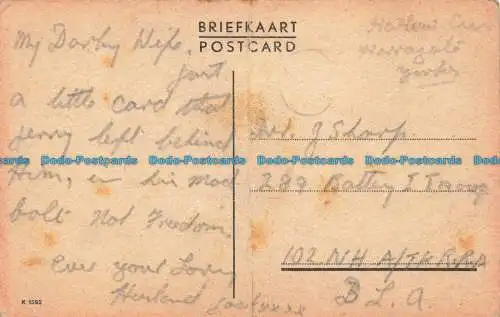 BRIEFKAART
POSTCARD
My Darling Wife,
Just
a little card that
Jerry left behind
Him, in his mad
bolt Not Freedom
Ever your Loving
Husband
xxxx
K 1592
Harrogate
Yorks
J Sharp
289 Battery I Troop
102 NH A/TK R.R.A
B L A.
Dodo-Postcards Dodo-Postcards Dodo-Postcards Dodo-Postcards